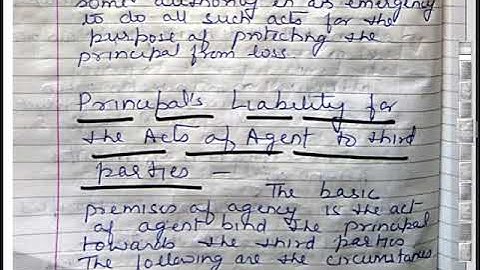 some authority in an emergency
to do all such acts for the
purpose of protecting the
principal from loss.
Principal's Liability for
the Acts of Agent to third
parties -
The basic
premises of agency is the act
of agent bind the principal
towards the third parties
The following are the circumstances